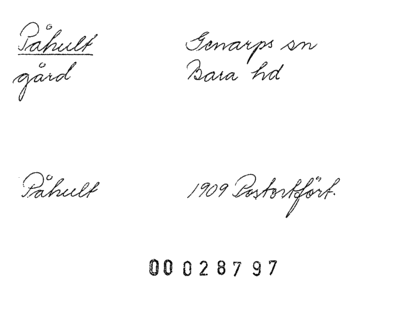 Påhult Genarps sn
gård Bara hd
Påhult 1909 Postortfört.
00 028797